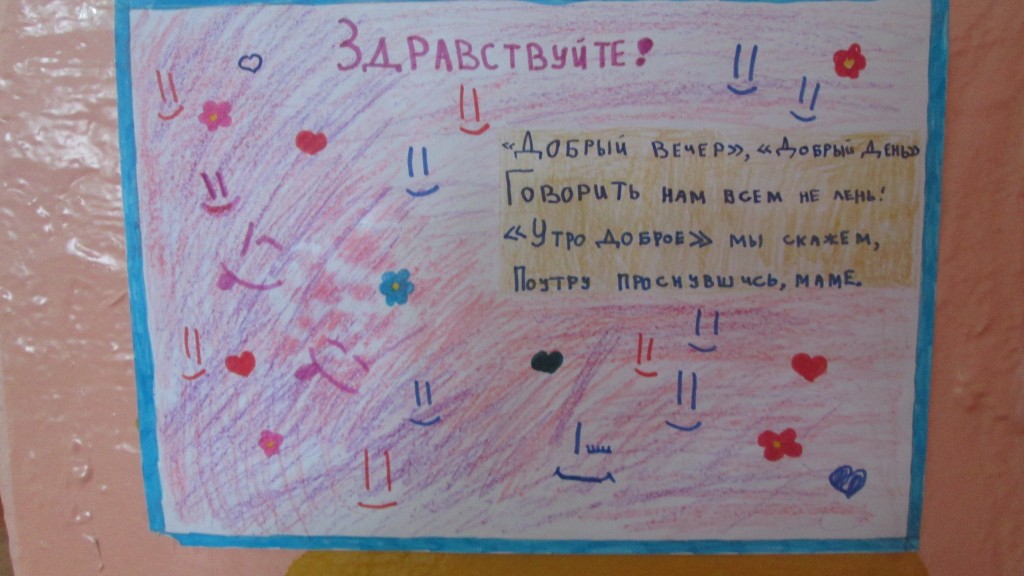 ЗДРАВСТВУЙТЕ!
«ДОБРЫЙ ВЕЧЕР», «ДОБРЫЙ ДЕНЬ»
ГОВОРИТЬ НАМ ВСЕМ НЕ ЛЕНЬ!
«УТРО ДОБРОЕ» МЫ СКАЖЕМ,
ПОУТРУ ПРОСНУВШИСЬ, МАМЕ.